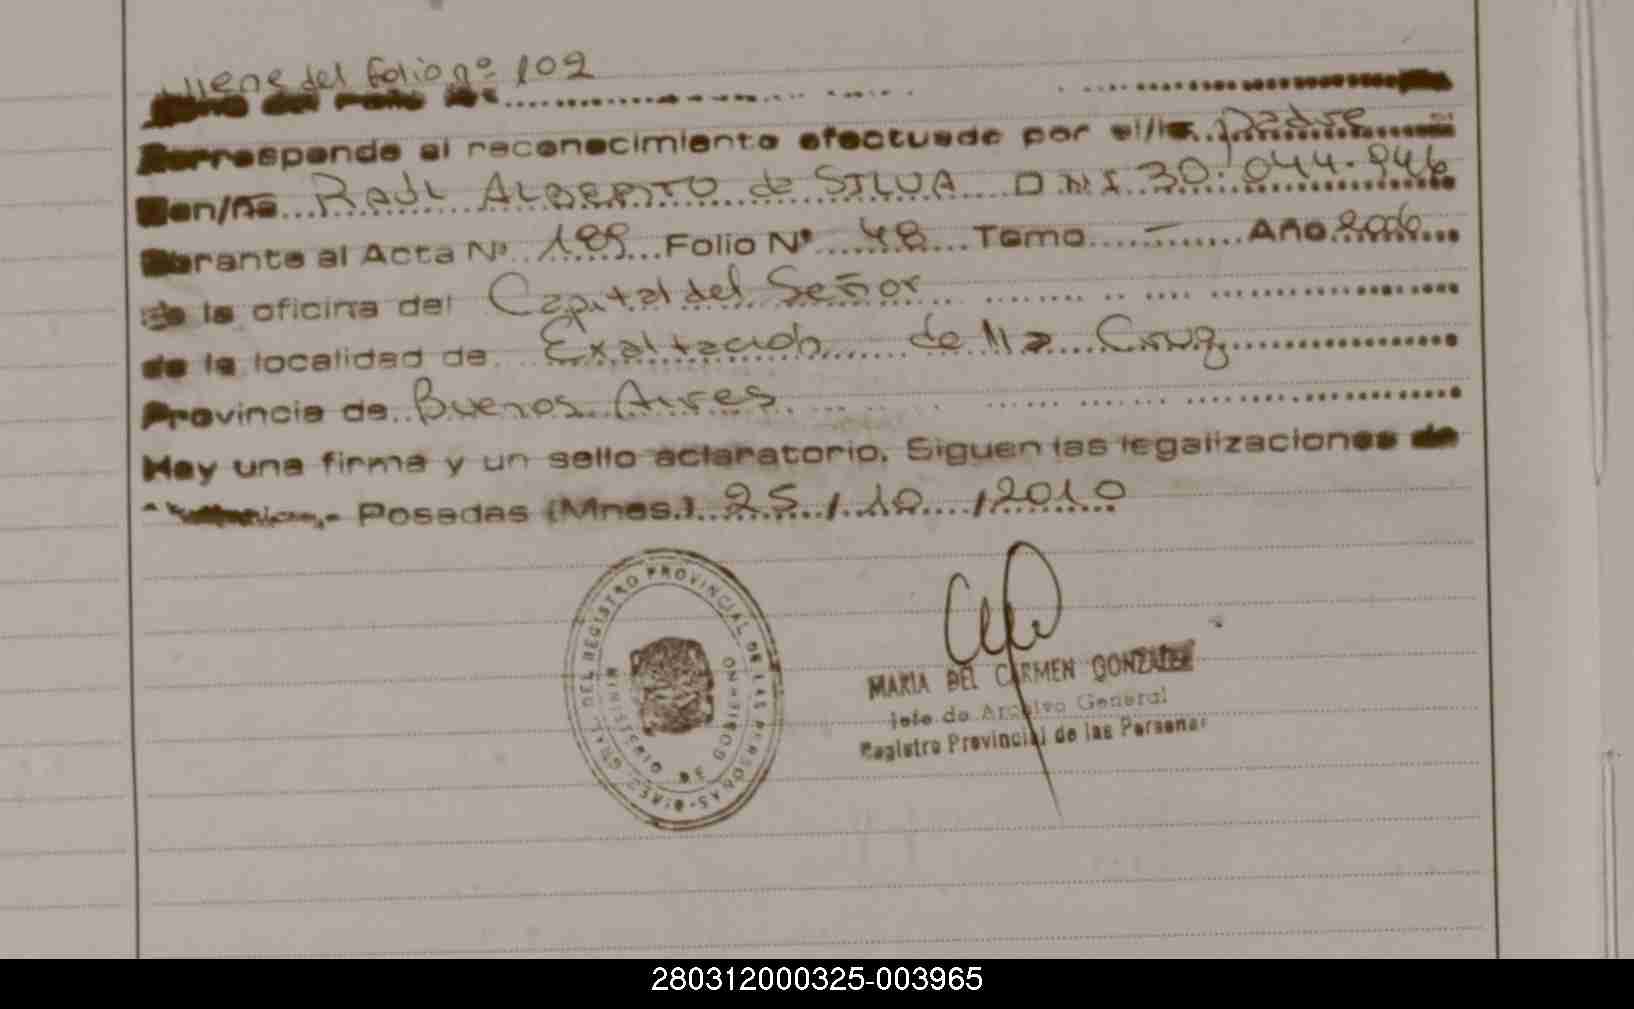 Viene del folio nº 102
Corresponde al reconocimiento efectuado por el/la padre
Don/ña RAUL ALBERTO de SILVA DNI 30.044.946
Durante al Acta Nº 189 Folio Nº 48 Tomo — Año 2006
de la oficina del Capital del Señor
de la localidad de Exaltación de lla Cruz
Provincia de Buenos Aires
Hay una firma y un sello aclaratorio. Siguen las legalizaciones de
Posadas (Mnes.) 25/10/2010
GRAL. DEL REGISTRO PROVINCIAL DE LAS PERSONAS
MINISTERIO DE GOBIERNO
MARIA DEL CARMEN GONZALEZ
Jefe de Archivo General
Registro Provincial de las Personas
280312000325-003965